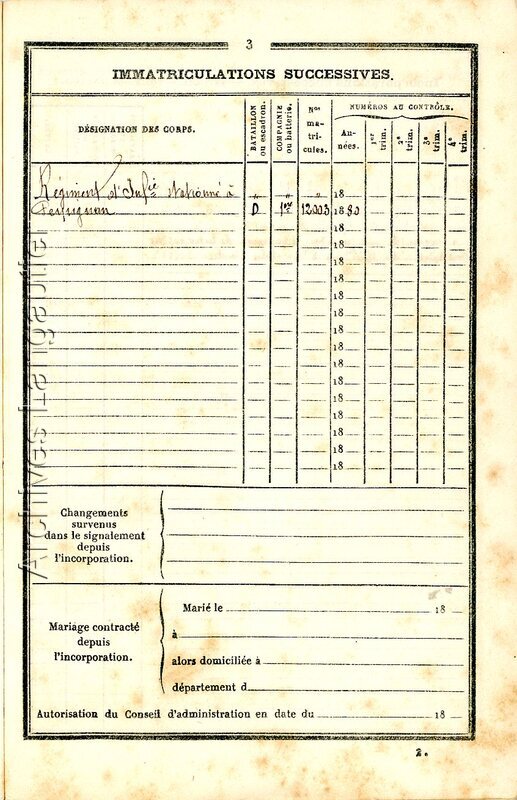 3
IMMATRICULATIONS SUCCESSIVES.
DÉSIGNATION DES CORPS.
BATAILLON
ou escadron.
COMPAGNIE
ou batterie.
Nos
ma-
tri-
cules.
NUMÉROS AU CONTRÔLE.
An-
nées.
1er
trim.
2e
trim.
3e
trim.
4e
trim.
Régiment d'Infie stationné à
18
Perpignan D 1re 12003 1880
18
18
18
18
18
18
18
18
18
18
18
18
18
18
18
Changements
survenus
dans le signalement
depuis
l'incorporation.
Mariage contracté
depuis
l'incorporation.
Marié le 18
à
alors domiciliée à
département d
Autorisation du Conseil d'administration en date du 18
2.